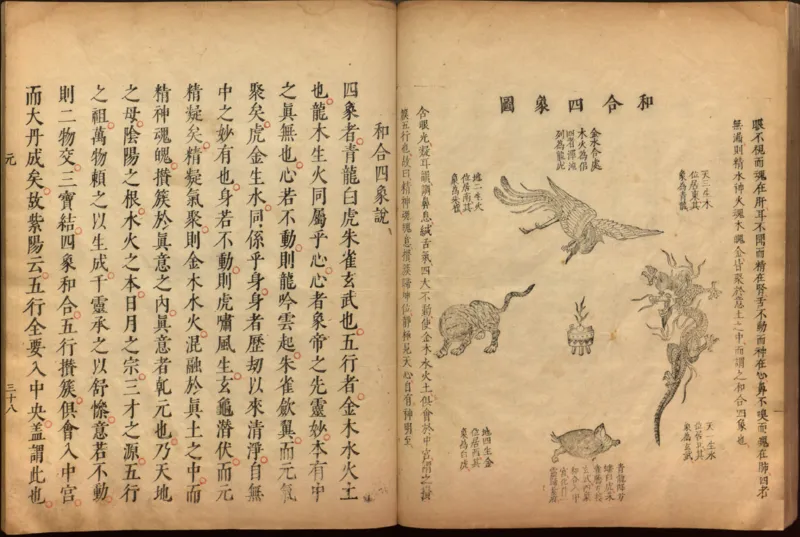 和合四象圖
眼不視而魂在肝耳不聞而精在腎舌不動而神在心鼻不嗅而魄在肺四者
無漏則精水神火魂木魄金皆聚於意土之中而謂之和合四象也
天三生木
位居東其
象為青龍
金水合處
木火為侶
四者混沌
列為龍虎
地二生火
位居南其
象為朱雀
天一生水
位居北其
象為玄武
地四生金
位居西其
象為白虎
含眼光凝耳韻調鼻息緘舌氣四大不動使金木水火土俱會於中宮謂之攢
簇五行也故曰精神魂魄意攢簇歸坤位靜極見天心自有神明至
和合四象說
四象者青龍白虎朱雀玄武也五行者金木水火土
也龍木生火同屬乎心心者象帝之先靈妙本有中
之眞無也心若不動則龍吟雲起朱雀歛翼而元氣
聚矣虎金生水同係乎身身者歷劫以來清淨自無
中之妙有也身若不動則虎嘯風生玄龜潛伏而元
精凝矣精凝氣聚則金木水火混融於眞土之中而
精神魂魄攢簇於眞意之內眞意者乾元也乃天地
之母陰陽之根水火之本日月之宗三才之源五行
之祖萬物賴之以生成千靈承之以舒慘意若不動
則二物交三寶結四象和合五行攢簇俱會入中宮
而大丹成矣故紫陽云五行全要入中央蓋謂此也
元
三十八